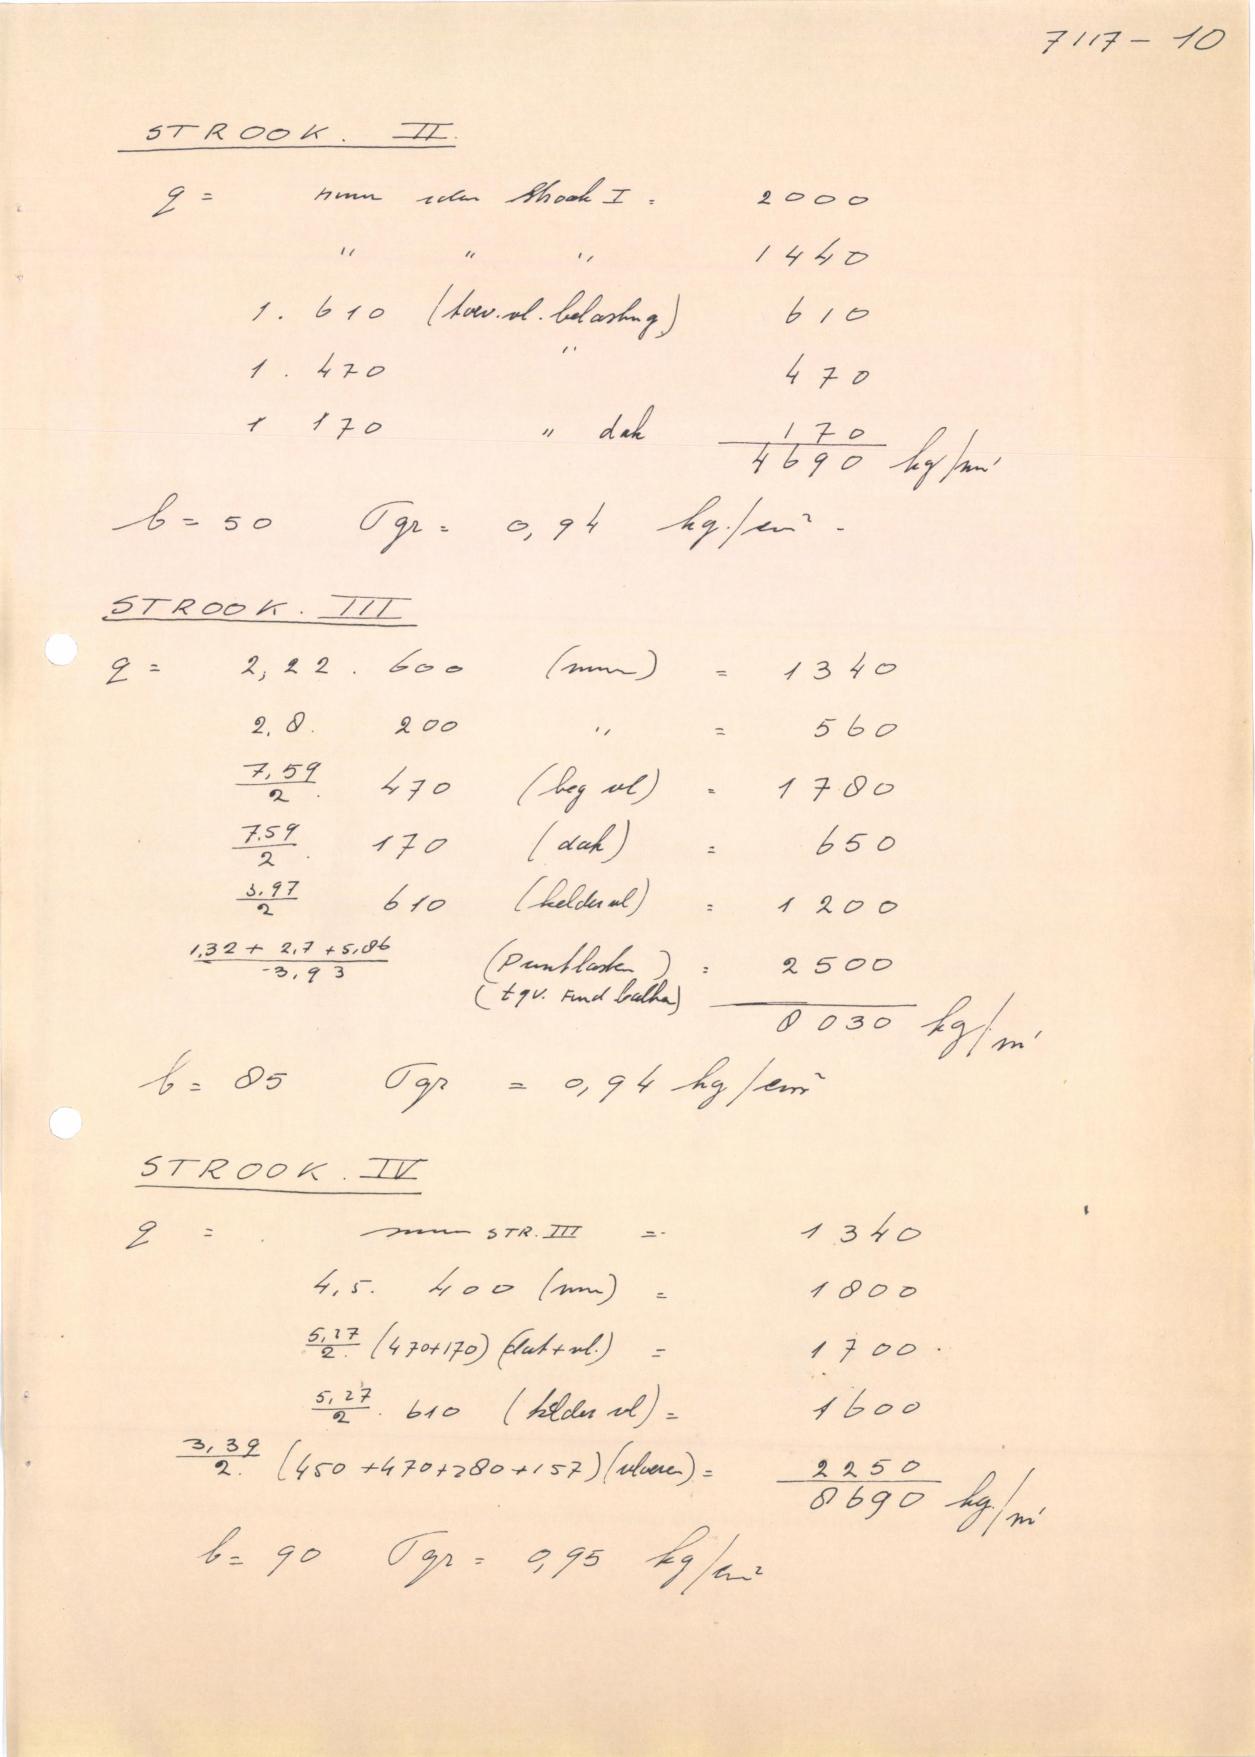 7117 - 10
STROOK. II.
q = muur idem Strook I = 2000
" " " 1440
1. 610 (toev. vl. belasting) 610
1. 470 " 470
1 170 " dak 170
4690 kg/m'
b = 50 σgr = 0,94 kg./cm² -
STROOK. III
q = 2,22 . 600 (muur) = 1340
2,8. 200 " = 560
7,59/2 . 470 (beg vl) = 1780
7.59/2 . 170 (dak) = 650
3.97/2 610 (kelder vl) = 1200
(1,32 + 2,7 + 5,86)/3,93 (Puntlasten) = 2500
(tgv. Fund balken)
8030 kg/m'
b = 85 σgr = 0,94 kg/cm²
STROOK. IV
q = muur STR. III = 1340
4,5. 400 (muur) = 1800
5,27/2. (470+170) (dak+vl.) = 1700
5,27/2 . 610 (kelder vl) = 1600
3,39/2. (450 +470+280+157) (vloeren) = 2250
8690 kg/m'
b = 90 σgr = 0,95 kg/cm²